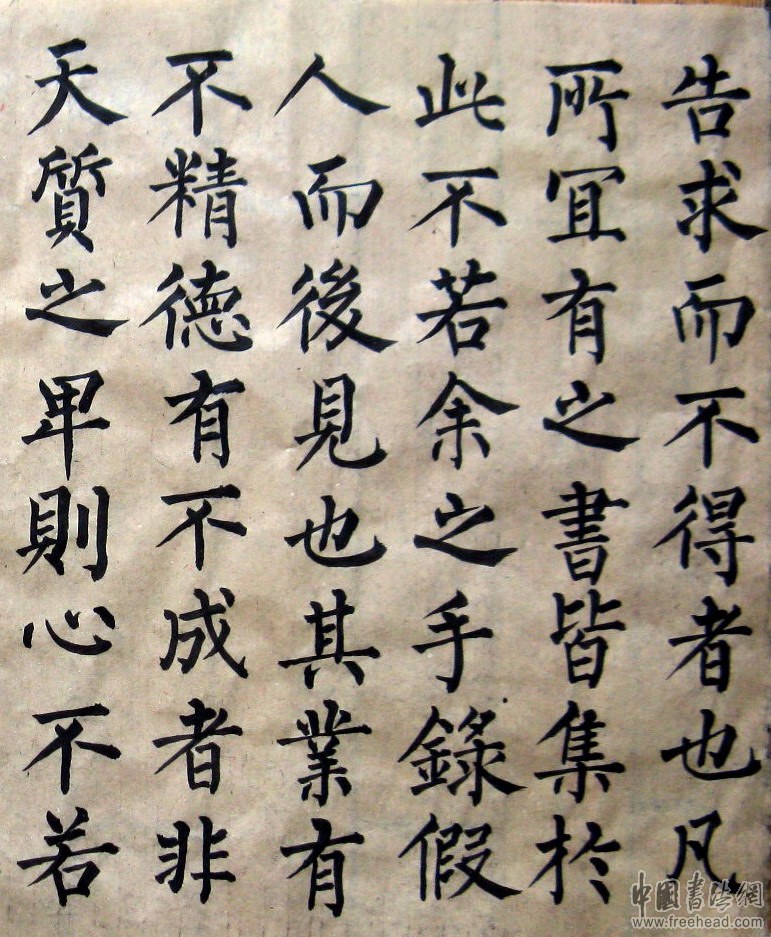 告求而不得者也凡
所宜有之書皆集於
此不若余之手錄假
人而後見也其業有
不精德有不成者非
天質之卑則心不若
中國書法網
www.freehead.com